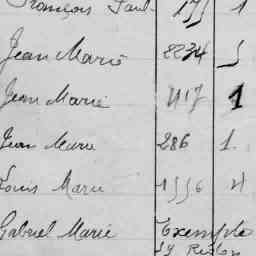 François Paul 155 1
Jean Marie 2234 5
Jean Marie 417 1
Jean Marie 286 1.
Louis Marie 1556 4
Gabriel Marie Exempte